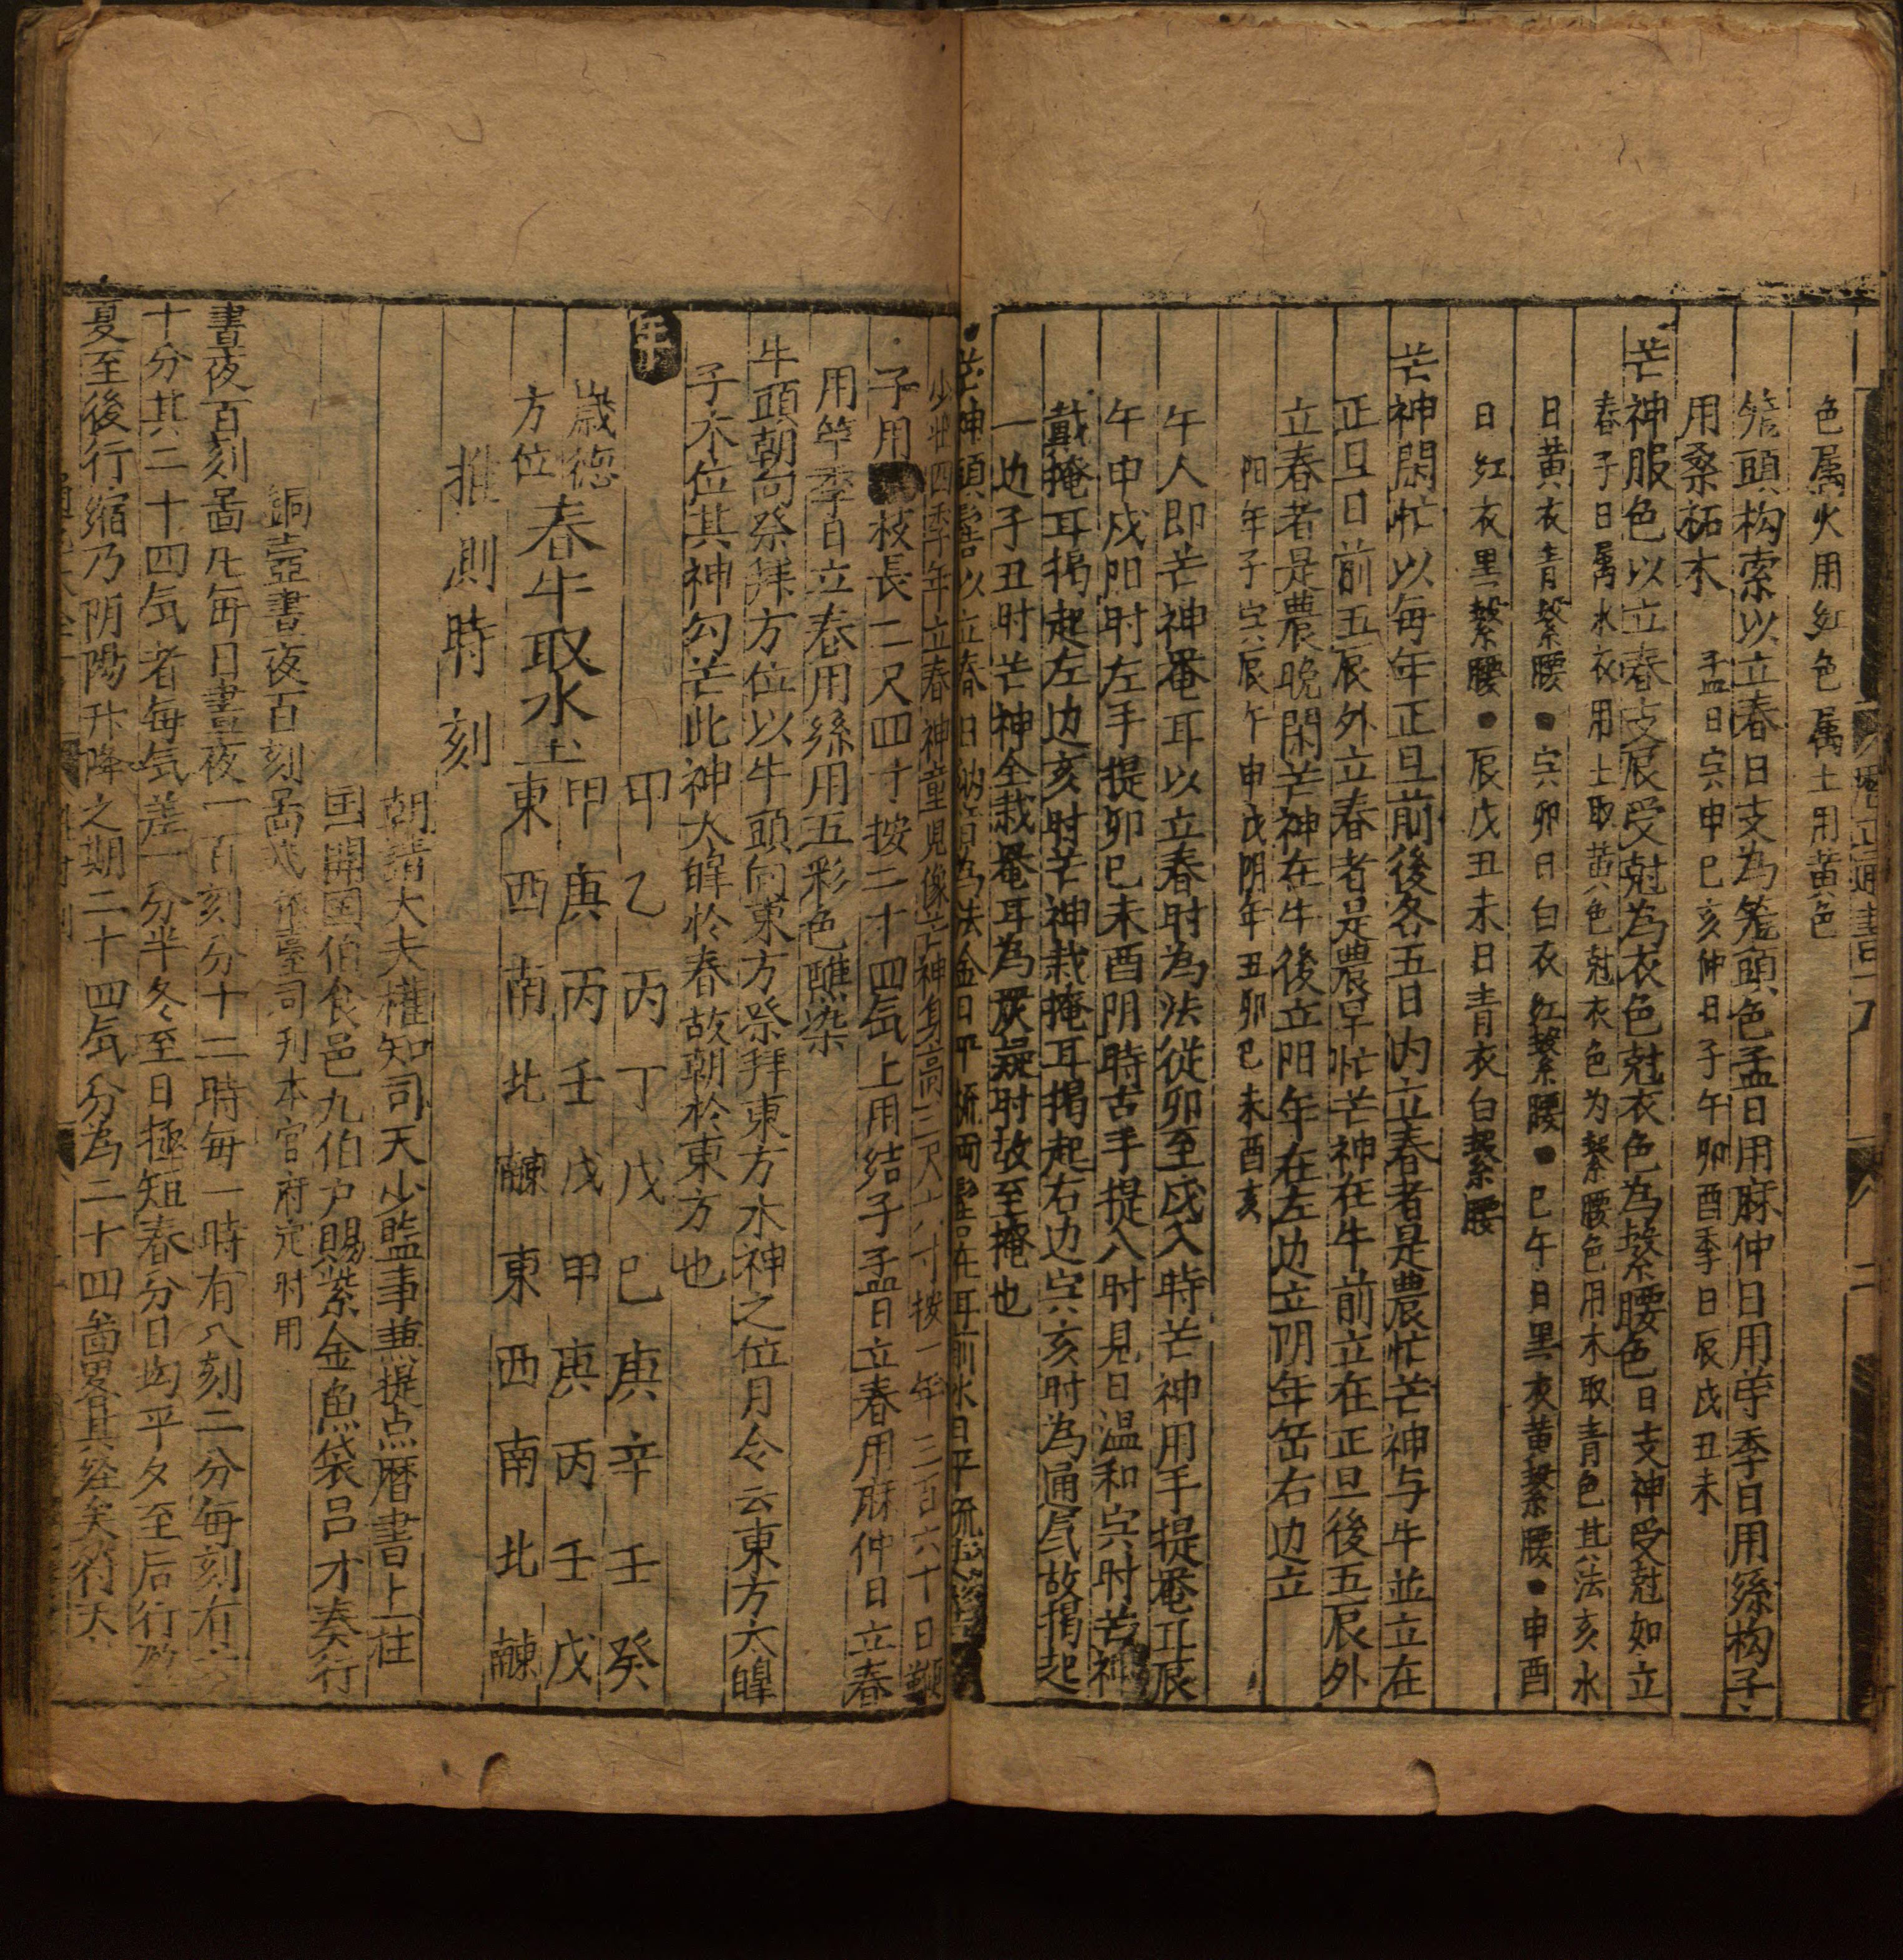 色属火用紅色属土用黄色
籠頭构索以立春日支為籠頭色孟日用麻仲日用苧季日用絲构子
用桑柘木 孟日寅申巳亥仲日子午卯酉季日辰戌丑未
芒神服色以立春支辰受尅為衣色尅衣色為繫腰色日支神受尅如立
春子日属水衣用土取黄色尅衣色为繫腰色用木取青色其法亥水
日黄衣青繫腰●寅卯日白衣紅繫腰●巳午日黒衣黄繫腰●申酉
日紅衣黒繫腰●辰戌丑未日青衣白繫腰
芒神閑忙以每年正旦前後各五日内立春者是農忙芒神与牛並立在
正旦日前五辰外立春者是農早忙芒神在牛前立在正旦後五辰外
立春者是農晚閑芒神在牛後立阳年在左边立阴年在右边立
阳年子寅辰午申戌阴年丑卯巳未酉亥
午人即芒神罨耳以立春时為法從卯至戌八時芒神用手提罨耳辰
午申戌阳时左手提卯巳未酉阴時右手提八时見日温和寅时芒神
戴掩耳揭起左边亥时芒神栽掩耳揭起右边寅亥时為通氣故揭起
一边子丑时芒神全栽罨耳為嚴凝时故至掩也
芒神頭髻以立春日納音為法金日平梳両髻在耳前水日平梳
少壮四季年立春神童児像芒神身高三尺六寸按一年三百六十日
子用枝長二尺四寸按二十四氣上用結子孟日立春用麻仲日立春
用苧季日立春用絲用五彩色醮染
牛頭朝向祭拜方位以牛頭向東方祭拜東方水神之位月令云東方太皥
子木位其神勾芒此神太皥於春故朝於東方也
年 甲乙丙丁戊巳庚辛壬癸
歲徳 甲庚丙壬戊甲庚丙壬戊
方位 春牛取水土 東西南北東西南北
推測時刻
朝請大夫權知司天少監事兼提点暦書上柱
国開国伯食邑九伯户賜紫金魚袋呂才奏行
銅壺晝夜百刻啚 臺司刊本官府定时用
晝夜百刻啚凡每日晝夜一百刻分十二時每一時有八刻二分每刻有六
十分其二十四氣者每氣差一分半冬至日極短春分日均平夕至后行
夏至後行縮乃阴陽升降之期二十四氣分為二十四